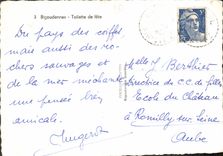 3 Bigoudennes - Toilette de fête
Du pays des coiffes
mais aussi des ro-
chers sauvages et
de la mer méchante
une pensée bien
amicale.
Melle J. Berthier
Directrice du C.C. de filles
Ecole du Château
à Romilly sur Seine
Aube